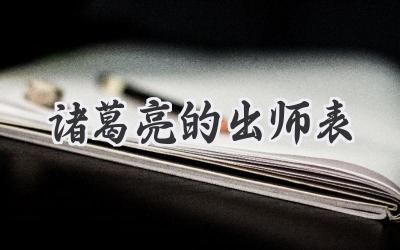 诸葛亮的出师表